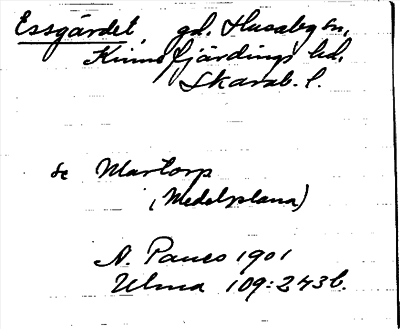 Essgärdet, gd. Husaby sn,
Kinnefjärdings hd,
Skarab. l.
se Martorp
(Medelplana)
A. Paues 1901
Ulma 109:243 b.